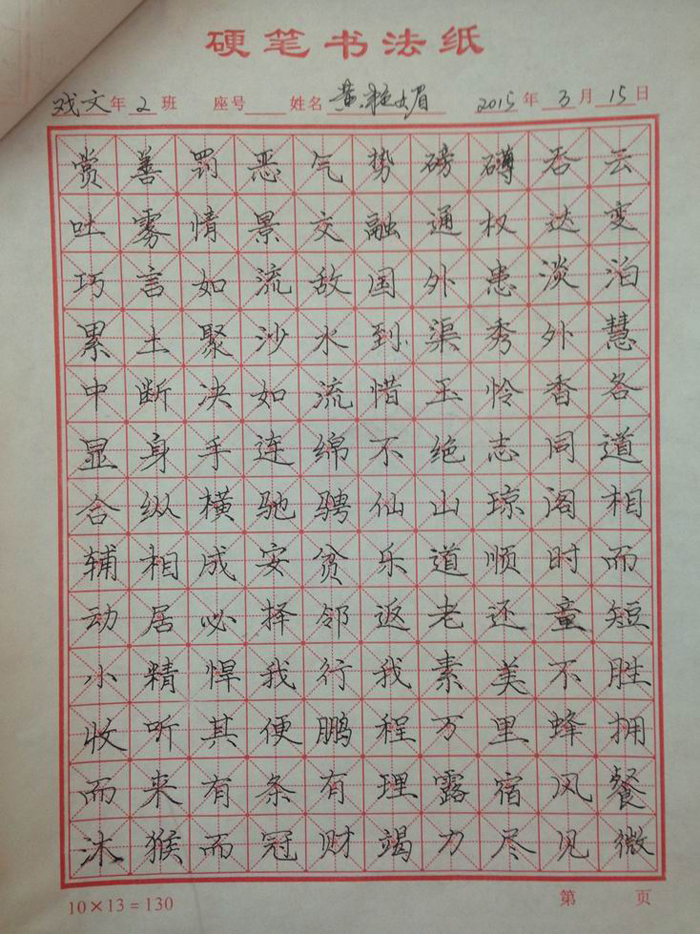 硬笔书法纸
戏文年2班 座号 姓名 黄 媚 2015年3月15日
赏善罚恶气势磅礴吞云
吐雾情景交融通权达变
巧言如流敌国外患淡泊
累土聚沙水到渠秀外慧
中断决如流惜玉怜香各
显身手连绵不绝志同道
合纵横驰骋仙山琼阁相
辅相成安贫乐道顺时而
动居必择邻返老还童短
小精悍我行我素美不胜
收听其便鹏程万里蜂拥
而来有条有理露宿风餐
沐猴而冠财竭力尽见微
10×13=130 第 页